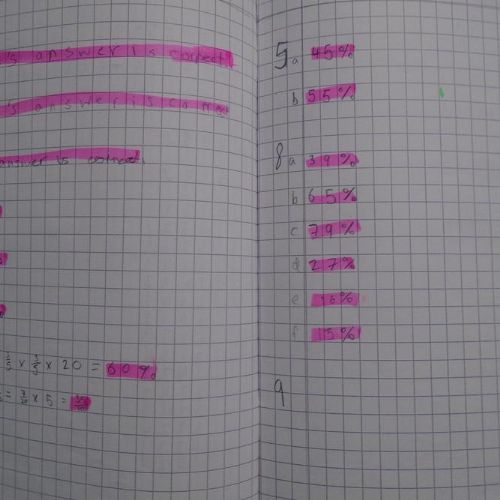 's answer is correct
's answer is
answer is correct
× 20 = 60%
× 5 =
5a 45%
b 55%
8a 39%
b 65%
c 79%
d 27%
e 16%
f 15%
9